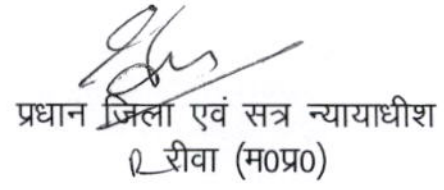 प्रधान जिला एवं सत्र न्यायाधीश
रीवा (म0प्र0)